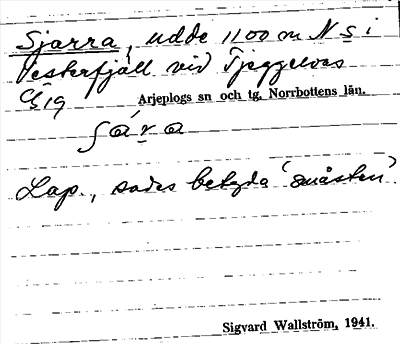 Sjarra, udde 1100 m N S i
Västerfjäll vid Tjeggelvas
Arjeplogs sn och tg, Norrbottens län.
Lap., sades betyda 'småsten'.
Sigvard Wallström, 1941.